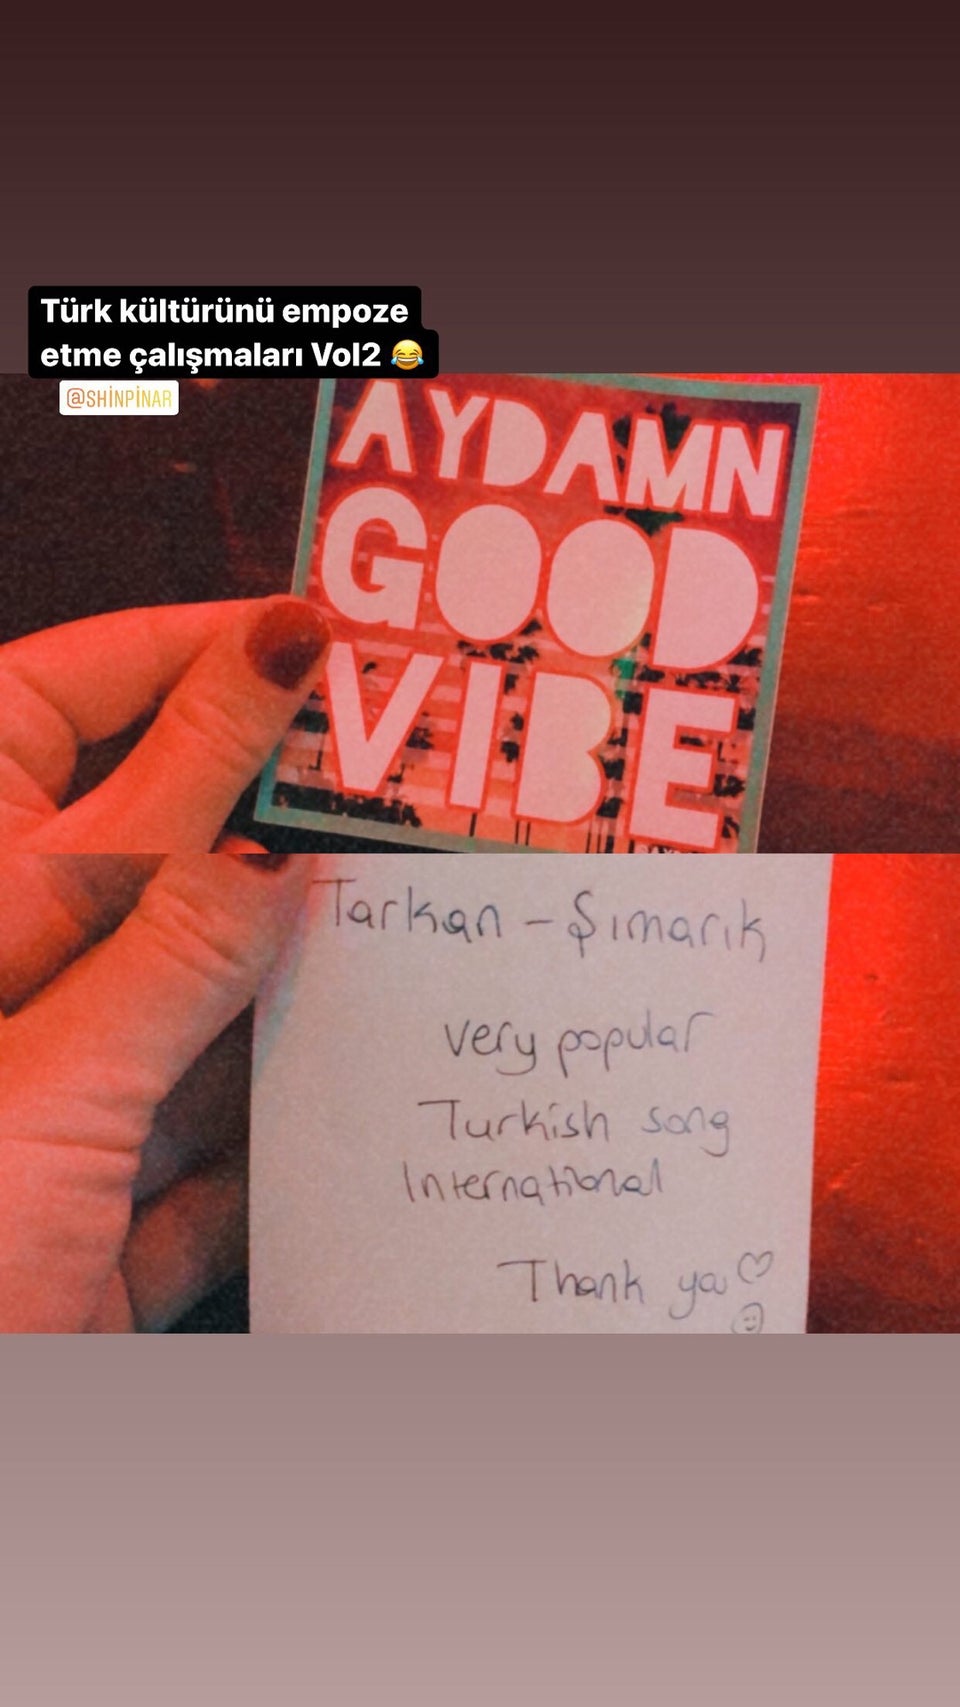 Türk kültürünü empoze
etme çalışmaları Vol2 😂
@SHİNPİNAR
AYDAMN
GOOD
VIBE
Tarkan - Şımarık
very popular
Turkish song
International
Thank ya ♡
☺